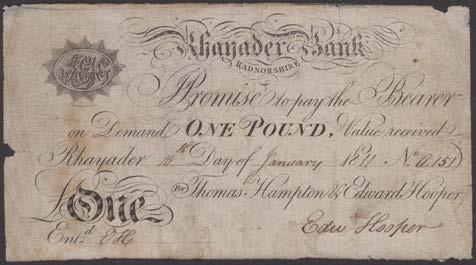 Rhayader Bank
RADNORSHIRE
I Promise to pay the Bearer
on Demand ONE POUND, Value received
Rhayader 16th Day of January 1811 No. A151
For Thomas Hampton & Edward Hooper
£ One
Edw Hooper
Entd. EH